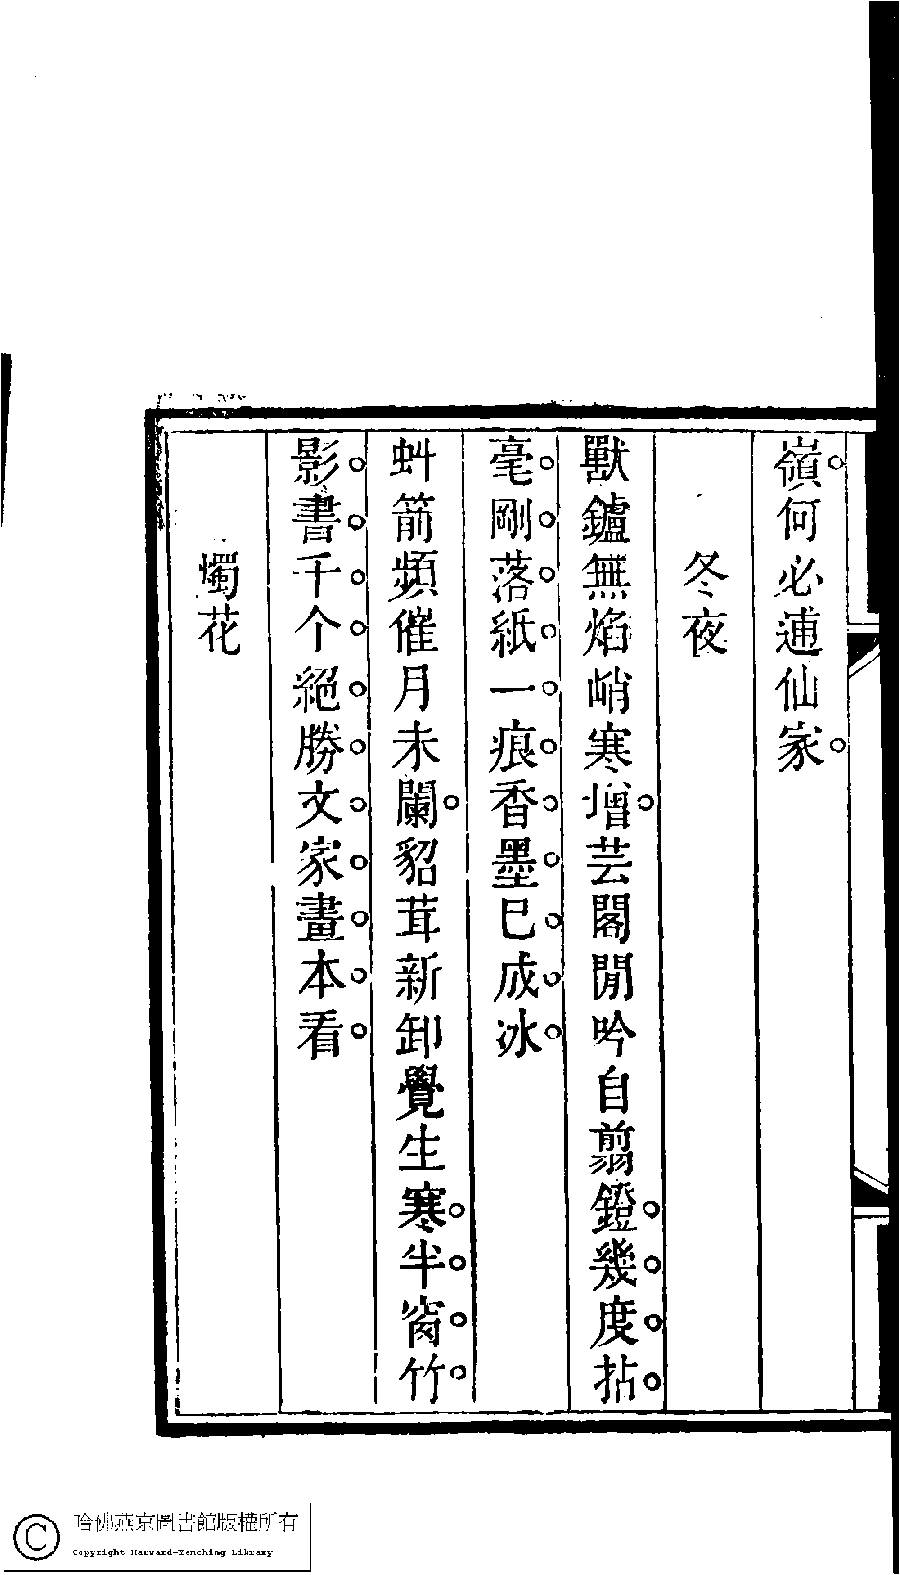 嶺何必連仙家
冬夜
獸鑪無焰峭寒增芸閣閒吟自翦鐙幾度拈
毫剛落紙一痕香墨巳成冰
蚪箭頻催月未闌貂茸新卸覺生寒半窗竹
影書千个絕勝文家畫本看
燭花
哈佛燕京圖書館版權所有
Copyright Harvard-Yenching Library